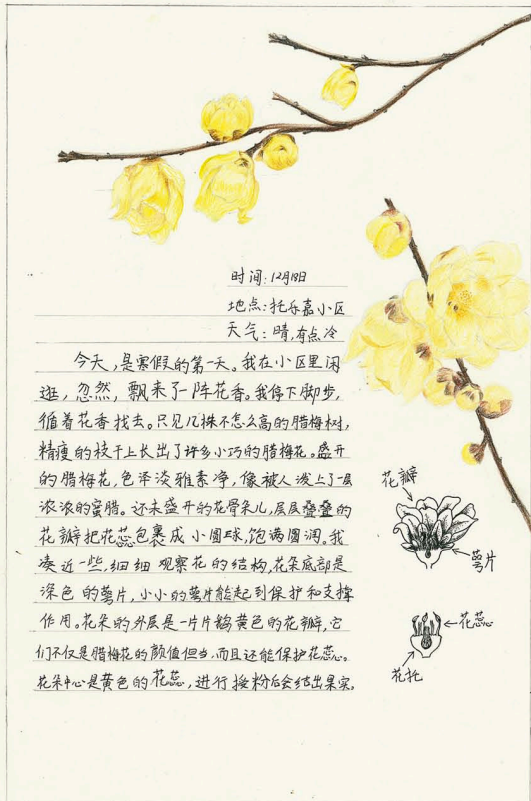 时间:12月18日
地点:托乐嘉小区
天气:晴,有点冷
今天,是寒假的第一天。我在小区里闲
逛,忽然,飘来了一阵花香。我停下脚步,
循着花香找去。只见几株不怎么高的腊梅树,
精瘦的枝干上长出了许多小巧的腊梅花。盛开
的腊梅花,色泽淡雅素净,像被人泼上了一层
浓浓的蜜腊。还未盛开的花骨朵儿,层层叠叠的
花瓣把花蕊包裹成小圆球,饱满圆润。我
凑近一些,细细观察花的结构,花朵底部是
深色的萼片,小小的萼片能起到保护和支撑
作用。花朵的外层是一片片鹅黄色的花瓣,它
们不仅是腊梅花的颜值但当,而且还能保护花蕊。
花朵中心是黄色的花蕊,进行授粉后会结出果实。
花瓣
萼片
花蕊
花托